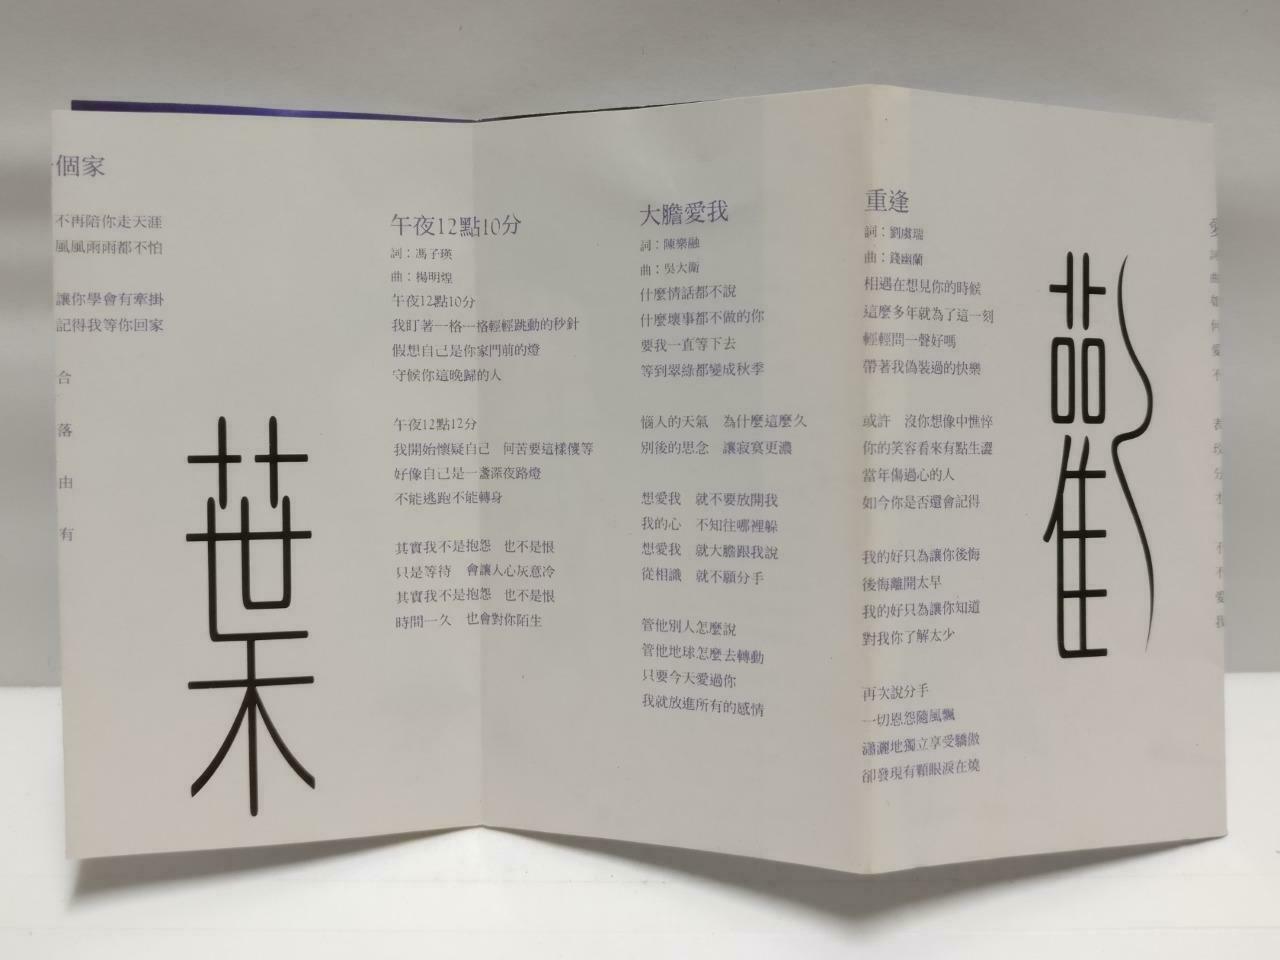 個家
不再陪你走天涯
風風雨雨都不怕
讓你學會有牽掛
記得我等你回家
合
落
由
有
葉
午夜12點10分
詞：馮子瑛
曲：楊明煌
午夜12點10分
我盯著一格一格輕輕跳動的秒針
假想自己是你家門前的燈
守候你這晚歸的人
午夜12點12分
我開始懷疑自己　何苦要這樣傻等
好像自己是一盞深夜路燈
不能逃跑不能轉身
其實我不是抱怨　也不是恨
只是等待　會讓人心灰意冷
其實我不是抱怨　也不是恨
時間一久　也會對你陌生
大膽愛我
詞：陳樂融
曲：吳大衛
什麼情話都不說
什麼壞事都不做的你
要我一直等下去
等到翠綠都變成秋季
惱人的天氣　為什麼這麼久
別後的思念　讓寂寞更濃
想愛我　就不要放開我
我的心　不知往哪裡躲
想愛我　就大膽跟我說
從相識　就不願分手
管他別人怎麼說
管他地球怎麼去轉動
只要今天愛過你
我就放進所有的感情
重逢
詞：劉虞瑞
曲：錢幽蘭
相遇在想見你的時候
這麼多年就為了這一刻
輕輕問一聲好嗎
帶著我偽裝過的快樂
或許　沒你想像中憔悴
你的笑容看來有點生澀
當年傷過心的人
如今你是否還會記得
我的好只為讓你後悔
後悔離開太早
我的好只為讓你知道
對我你了解太少
再次說分手
一切恩怨隨風飄
瀟灑地獨立享受驕傲
卻發現有顆眼淚在燒